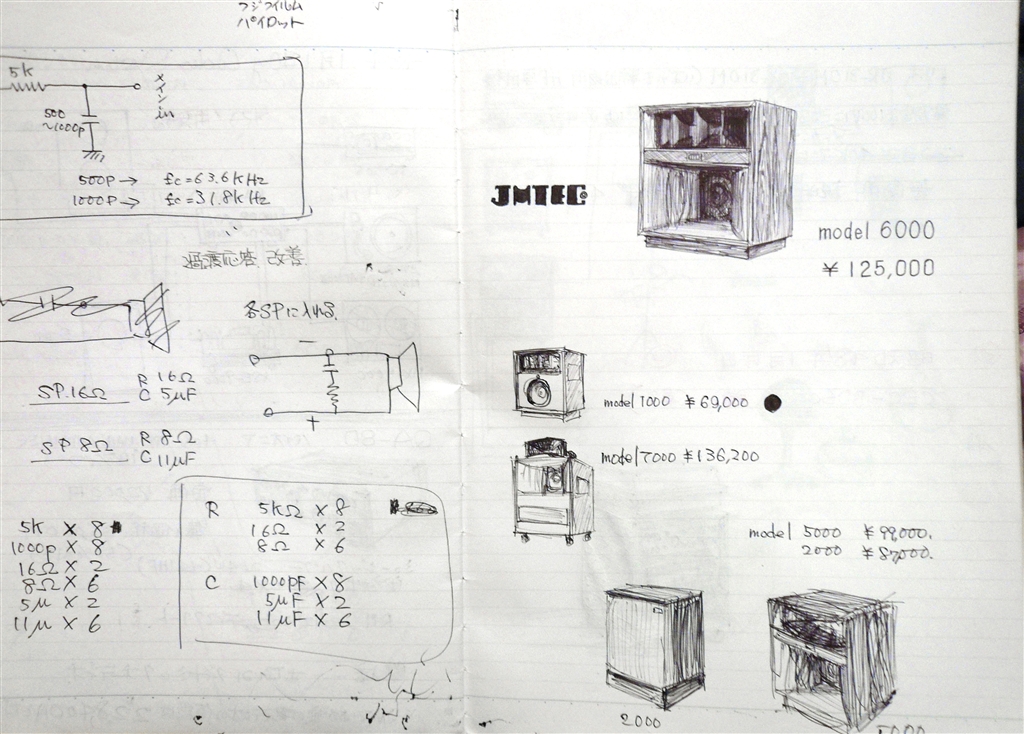 フジフイルム
パイロット
5K
メイン
in
500
~1000p
500P→ fc=63.6kHz
1000P→ fc=31.8kHz
過渡応答 改善
各SPに入れる.
−
+
SP.16Ω R 16Ω
C 5μF
SP 8Ω R 8Ω
C 11μF
5K × 8
1000p × 8
16Ω × 2
8Ω × 6
5μ × 2
11μ × 6
R 5kΩ × 8
16Ω × 2
8Ω × 6
C 1000pF × 8
5μF × 2
11μF × 6
JMTEC
model 6000
¥125,000
model 1000 ¥69,000
model 7000 ¥136,200
model 5000 ¥99,000.
2000 ¥57,000.
2000
5000